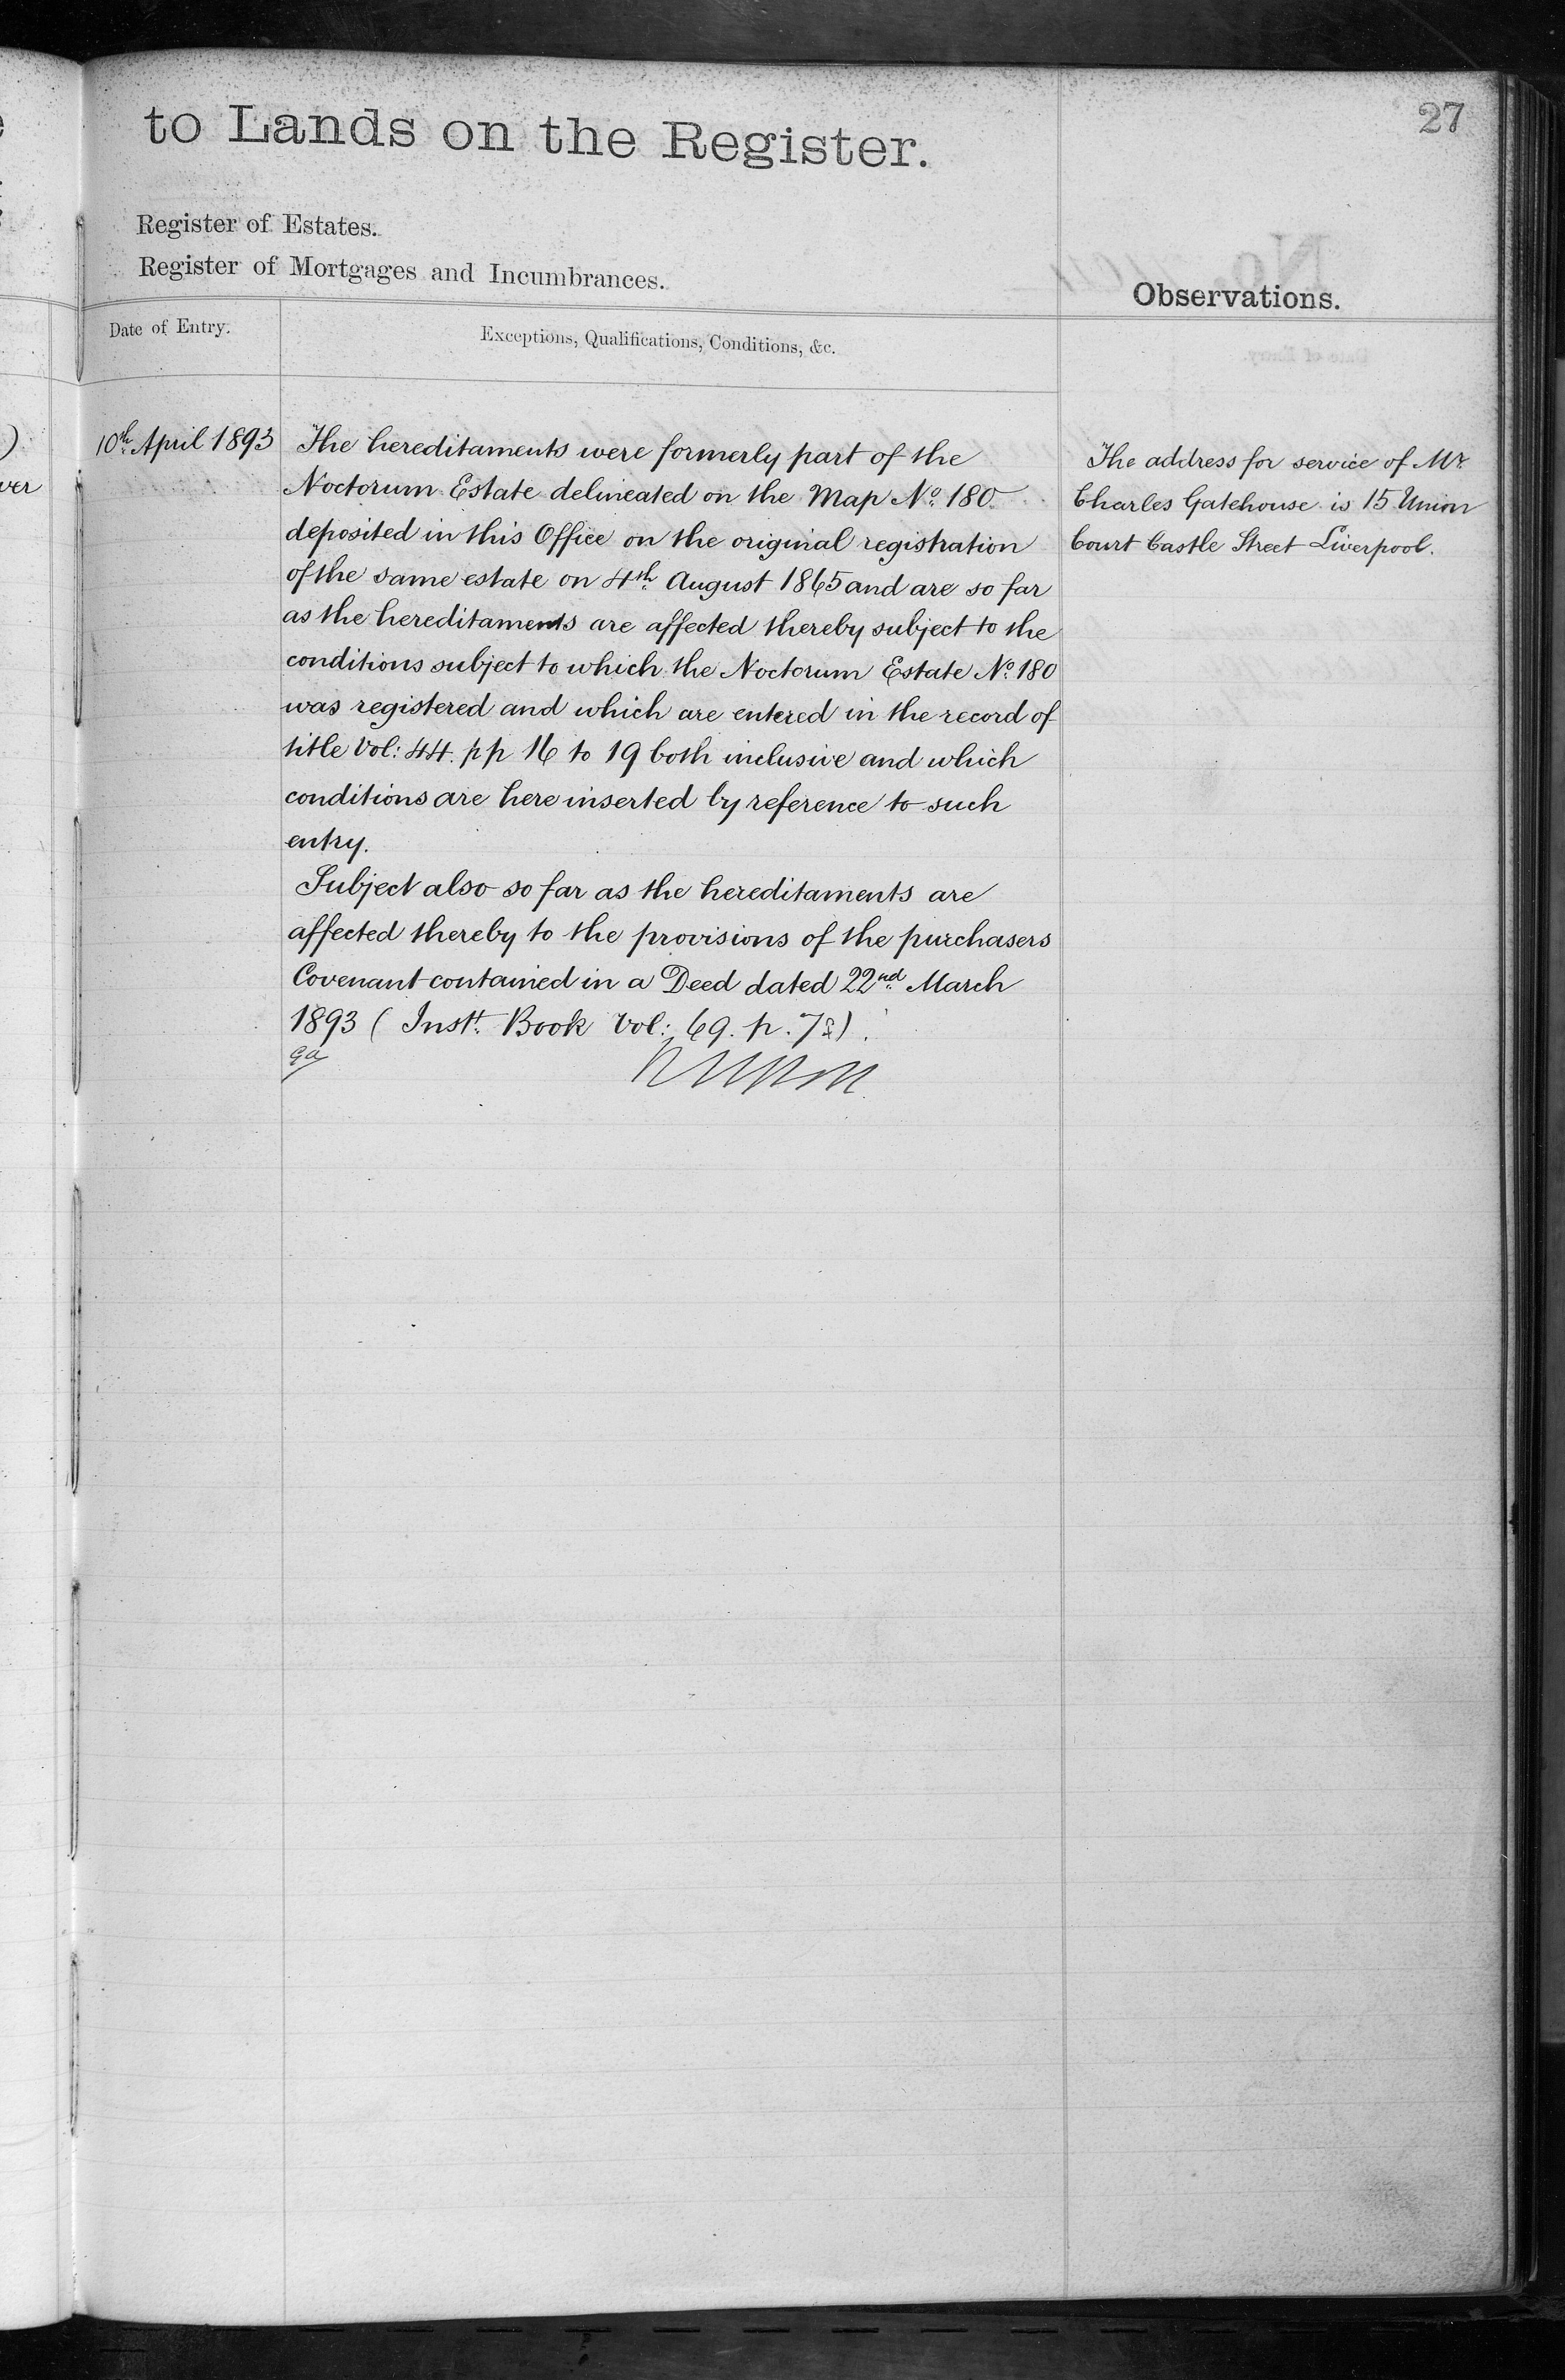 27
to Lands on the Register.
Register of Estates.
Register of Mortgages and Incumbrances.
Observations.
Date of Entry.
Exceptions, Qualifications, Conditions, &c.
10th April 1893
The hereditaments were formerly part of the
Noctorum Estate delineated on the Map No. 180
deposited in this Office on the original registration
of the same estate on 4th August 1865 and are so far
as the hereditaments are affected thereby subject to the
conditions subject to which the Noctorum Estate No. 180
was registered and which are entered in the record of
title Vol: 44. pp 16 to 19 both inclusive and which
conditions are here inserted by reference to such
entry.
Subject also so far as the hereditaments are
affected thereby to the provisions of the purchasers
Covenant contained in a Deed dated 22nd March
1893 (Instt. Book Vol: 69. p.
The address for service of Mr.
Charles Gatehouse is 15 Union
Court Castle Street Liverpool.